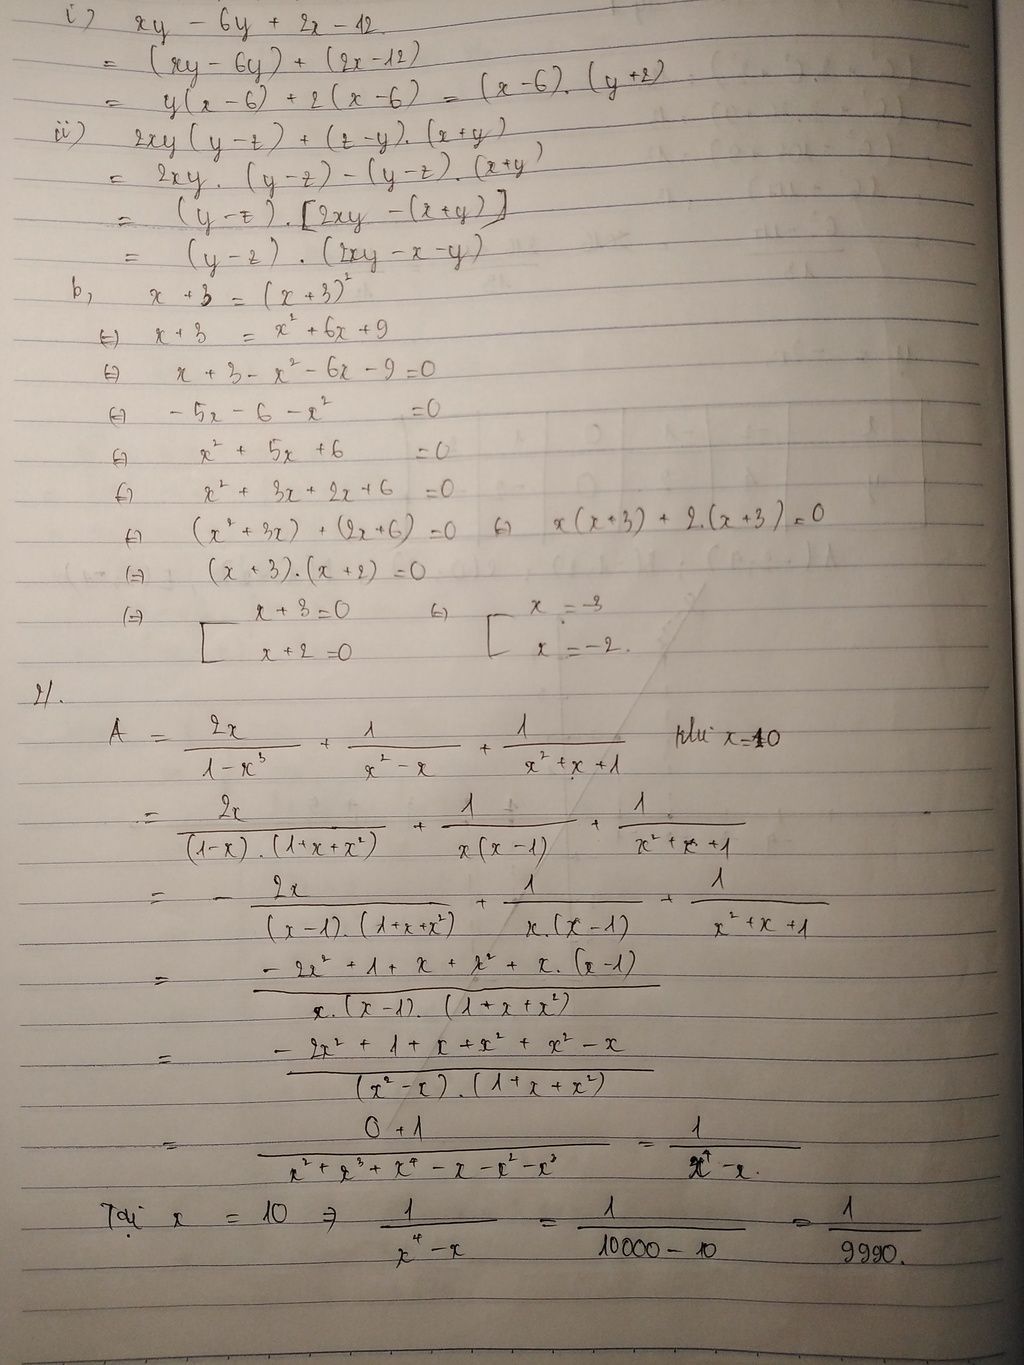 i) xy − 6y + 2x − 12.
= (xy − 6y) + (2x − 12)
= y(x − 6) + 2(x − 6) = (x − 6). (y + 2)
ii) 2xy (y − z) + (z − y). (x + y)
= 2xy . (y − z) − (y − z). (x + y)
= (y − z) . [2xy − (x + y)]
= (y − z) . (2xy − x − y)
b, x + 3 = (x + 3)²
⇔ x + 3 = x² + 6x + 9
⇔ x + 3 − x² − 6x − 9 = 0
⇔ − 5x − 6 − x² = 0
⇔ x² + 5x + 6 = 0
⇔ x² + 3x + 2x + 6 = 0
⇔ (x² + 3x) + (2x + 6) = 0 ⇔ x(x + 3) + 2.(x + 3) = 0
⇔ (x + 3).(x + 2) = 0
⇔ [ x + 3 = 0 ⇔ [ x = −3
x + 2 = 0 x = −2.
2/.
A = 2x/(1 − x³) + 1/(x² − x) + 1/(x² + x + 1) khi x = 10
= 2x/((1 − x) . (1 + x + x²)) + 1/(x(x − 1)) + 1/(x² + x + 1)
= − 2x/((x − 1). (1 + x + x²)) + 1/(x.(x − 1)) + 1/(x² + x + 1)
= (− 2x² + 1 + x + x² + x. (x − 1))/(x. (x − 1). (1 + x + x²))
= (− 2x² + 1 + x + x² + x² − x)/((x² − x) . (1 + x + x²))
= (0 + 1)/(x² + x³ + x⁴ − x − x² − x³) = 1/(x⁴ − x).
Tại x = 10 ⇒ 1/(x⁴ − x) = 1/(10000 − 10) = 1/9990.